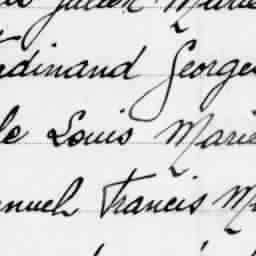 Julien Marie
rdinand Georges
le Louis Marie
anuel Francis Ma